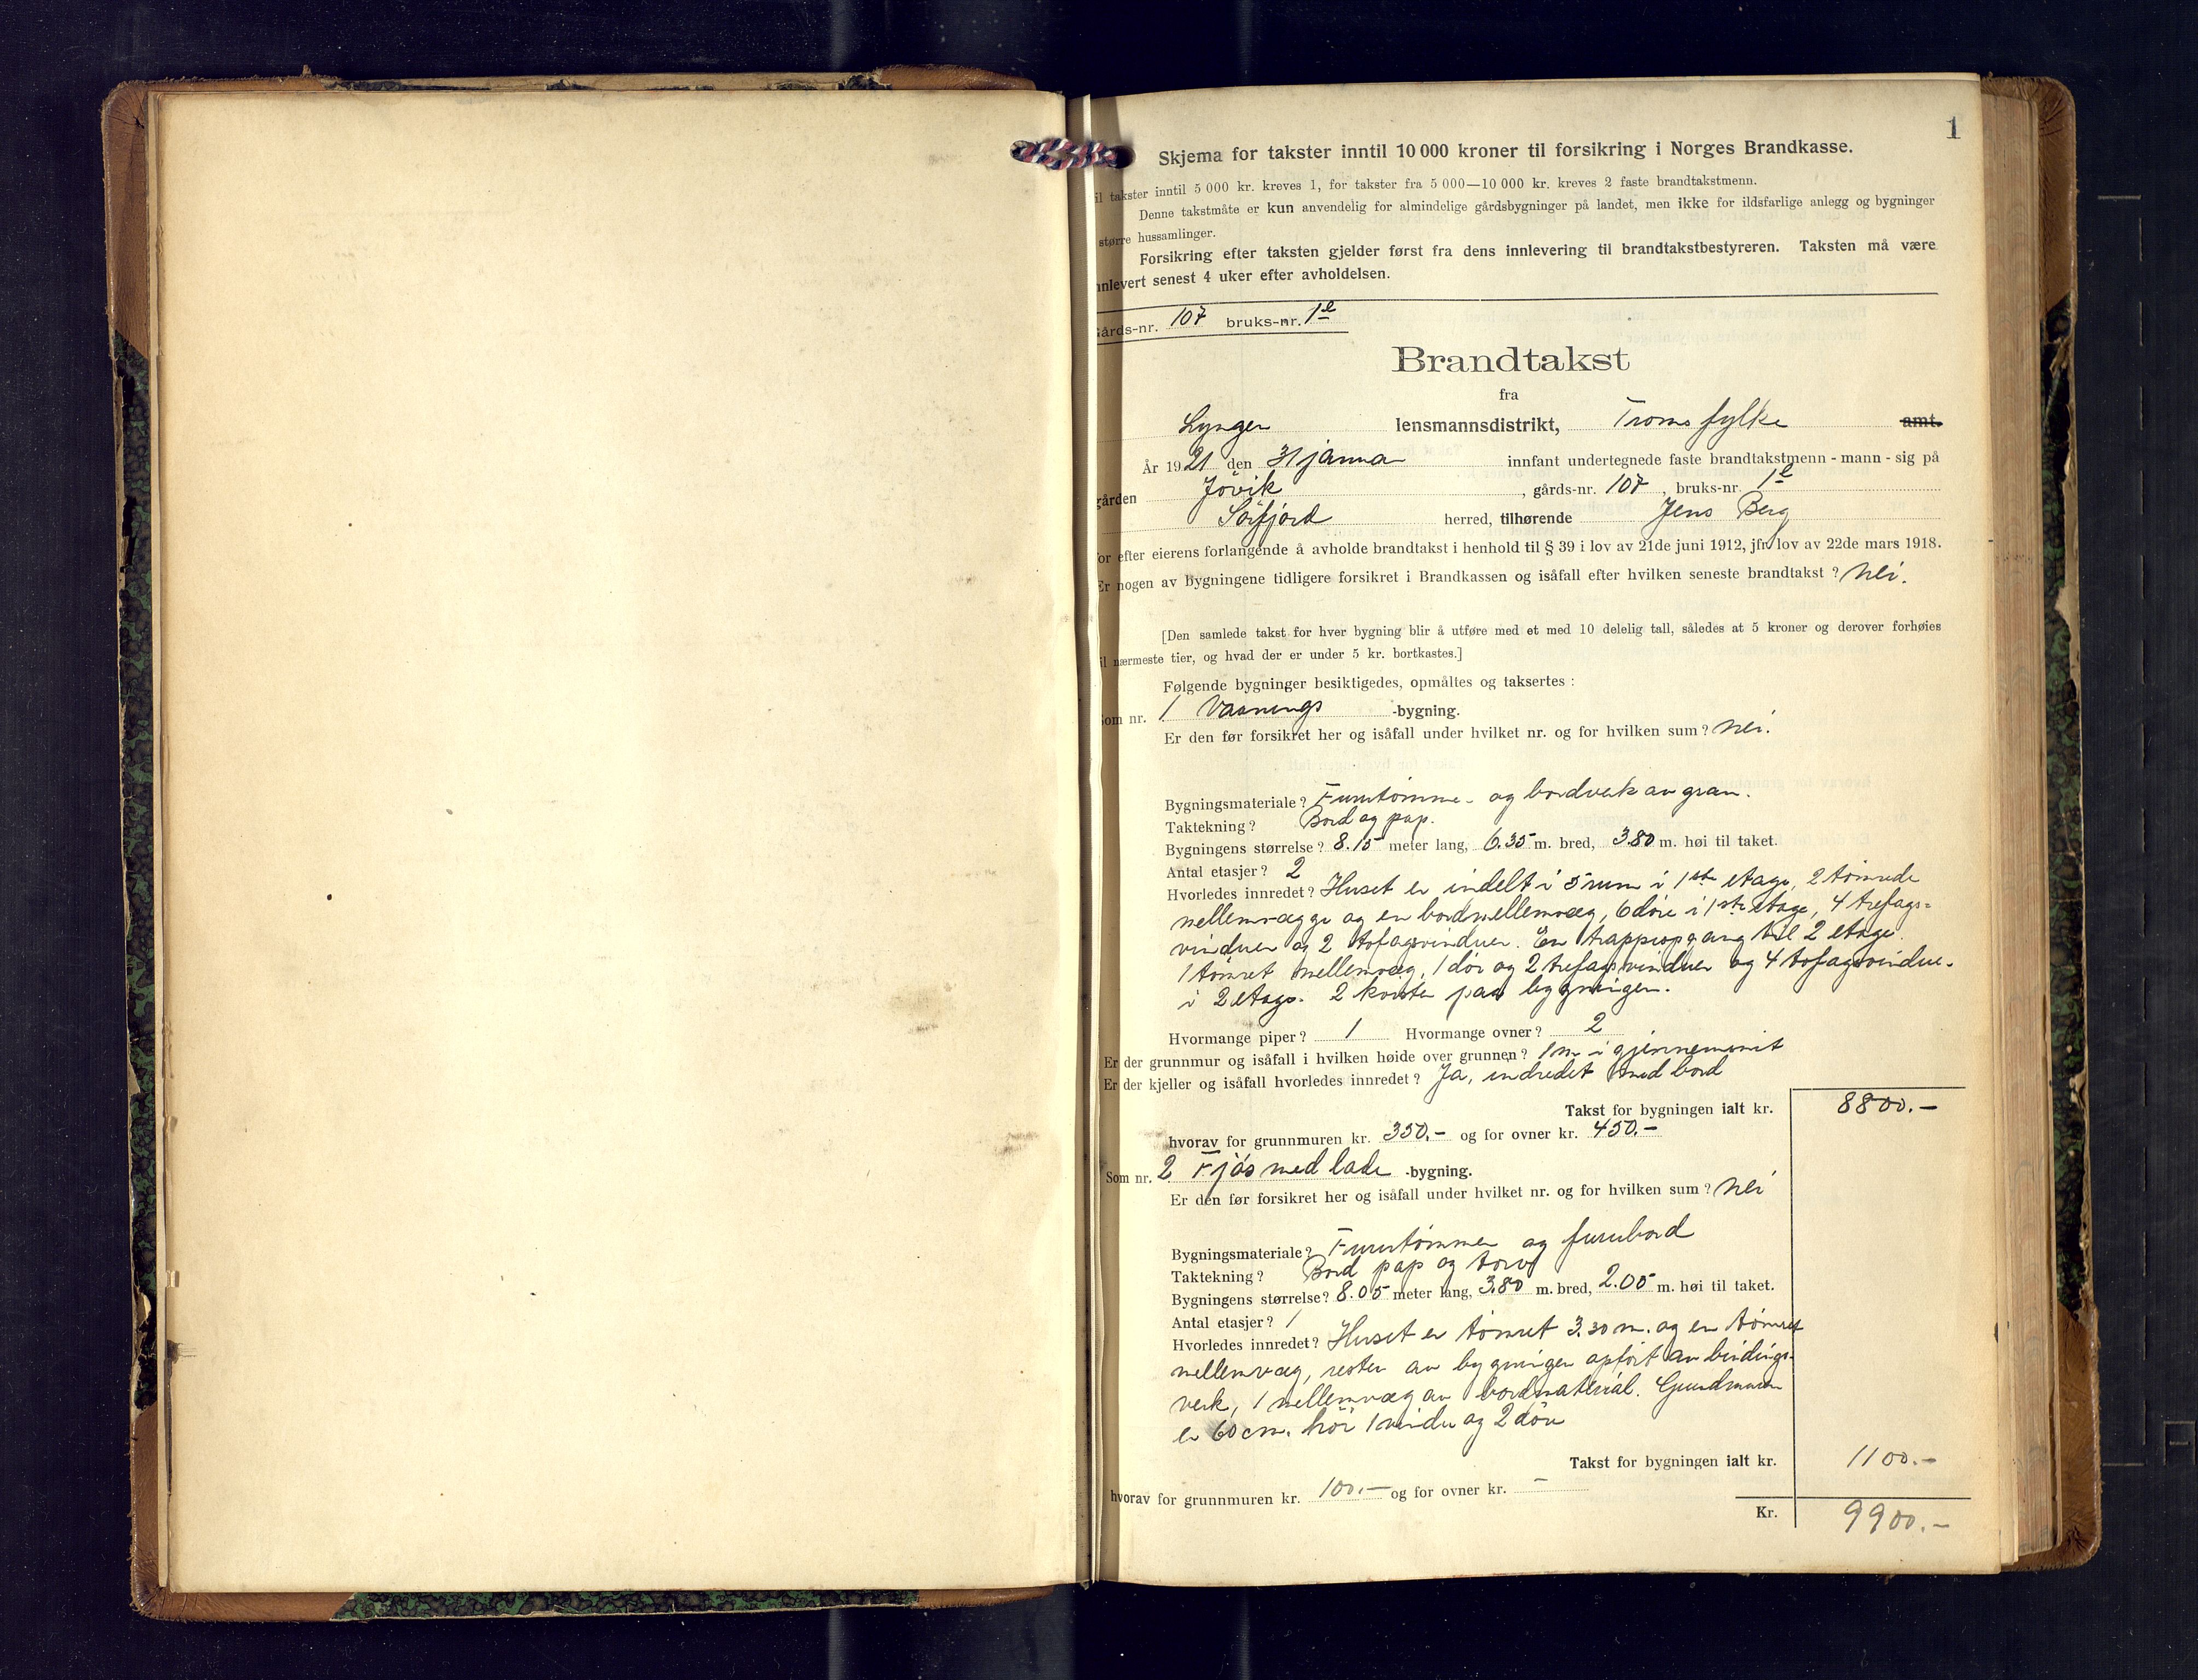 1
Skjema for takster inntil 10 000 kroner til forsikring i Norges Brandkasse.
il takster inntil 5 000 kr. kreves 1, for takster fra 5 000—10 000 kr. kreves 2 faste brandtakstmenn.
Denne takstmåte er kun anvendelig for almindelige gårdsbygninger på landet, men ikke for ildsfarlige anlegg og bygninger
større hussamlinger.
Forsikring efter taksten gjelder først fra dens innlevering til brandtakstbestyreren. Taksten må være
nnlevert senest 4 uker efter avholdelsen.
Gårds-nr. 107 bruks-nr. 1
Brandtakst
fra
Lyngen lensmannsdistrikt, Troms fylke amt.
År 1921 den 31 januar innfant undertegnede faste brandtakstmenn - mann - sig på
gården Jövik, gårds-nr. 107, bruks-nr. 1
Sörfjord herred, tilhørende Jens Berg
for efter eierens forlangende å avholde brandtakst i henhold til § 39 i lov av 21de juni 1912, jfr. lov av 22de mars 1918.
Er nogen av bygningene tidligere forsikret i Brandkassen og isåfall efter hvilken seneste brandtakst? Nei.
[Den samlede takst for hver bygning blir å utføre med et med 10 delelig tall, således at 5 kroner og derover forhøies
il nærmeste tier, og hvad der er under 5 kr. bortkastes.]
Følgende bygninger besiktigedes, opmåltes og taksertes:
Som nr. 1 Vaanings -bygning.
Er den før forsikret her og isåfall under hvilket nr. og for hvilken sum? Nei.
Bygningsmateriale? Furutömmer og bordverk av gran.
Taktekning? Bord og pap.
Bygningens størrelse? 8.15 meter lang, 6.35 m. bred, 3.80 m. høi til taket.
Antal etasjer? 2
Hvorledes innredet? Huset er indelt i 5 rum i 1ste etage, 2 tömrede
mellemvægge og en bordmellemvæg, 6 döre i 1ste etage, 4 trefags-
vinduer og 2 tofagsvinduer. En trappeopgang til 2 etage.
1 tömret mellemvæg, 1 dör og 2 trefagsvinduer og 4 tofagsvindue-
i 2 etage. 2 kvister paa bygningen.
Hvormange piper? 1 Hvormange ovner? 2
Er der grunnmur og isåfall i hvilken høide over grunnen? 1 m i gjennemsnit
Er der kjeller og isåfall hvorledes innredet? Ja, indredet med bord
Takst for bygningen ialt kr. 8800.-
hvorav for grunnmuren kr. 350.- og for ovner kr. 450.-
Som nr. 2 Fjös med lade -bygning.
Er den før forsikret her og isåfall under hvilket nr. og for hvilken sum? Nei
Bygningsmateriale? Furutömmer og furubord
Taktekning? Bord pap og torv
Bygningens størrelse? 8.05 meter lang, 3.80 m. bred, 2.05 m. høi til taket.
Antal etasjer? 1
Hvorledes innredet? Huset er tömret 3.30 m. og en tömret
mellemvæg, resten av bygningen opfört av bindings-
verk, 1 mellemvæg av bordmaterial. Grundmuren
er 60 cm. höi 1 vindu og 2 döre
Takst for bygningen ialt kr. 1100.-
hvorav for grunnmuren kr. 100.- og for ovner kr. -
Kr. 9900.-